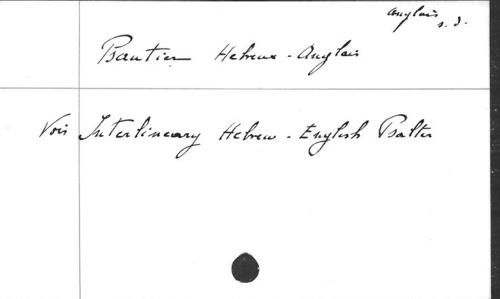 Anglais
s. d.
Psautier Hebreux - Anglais
Voir Interlineary Hebrew - English Psalter